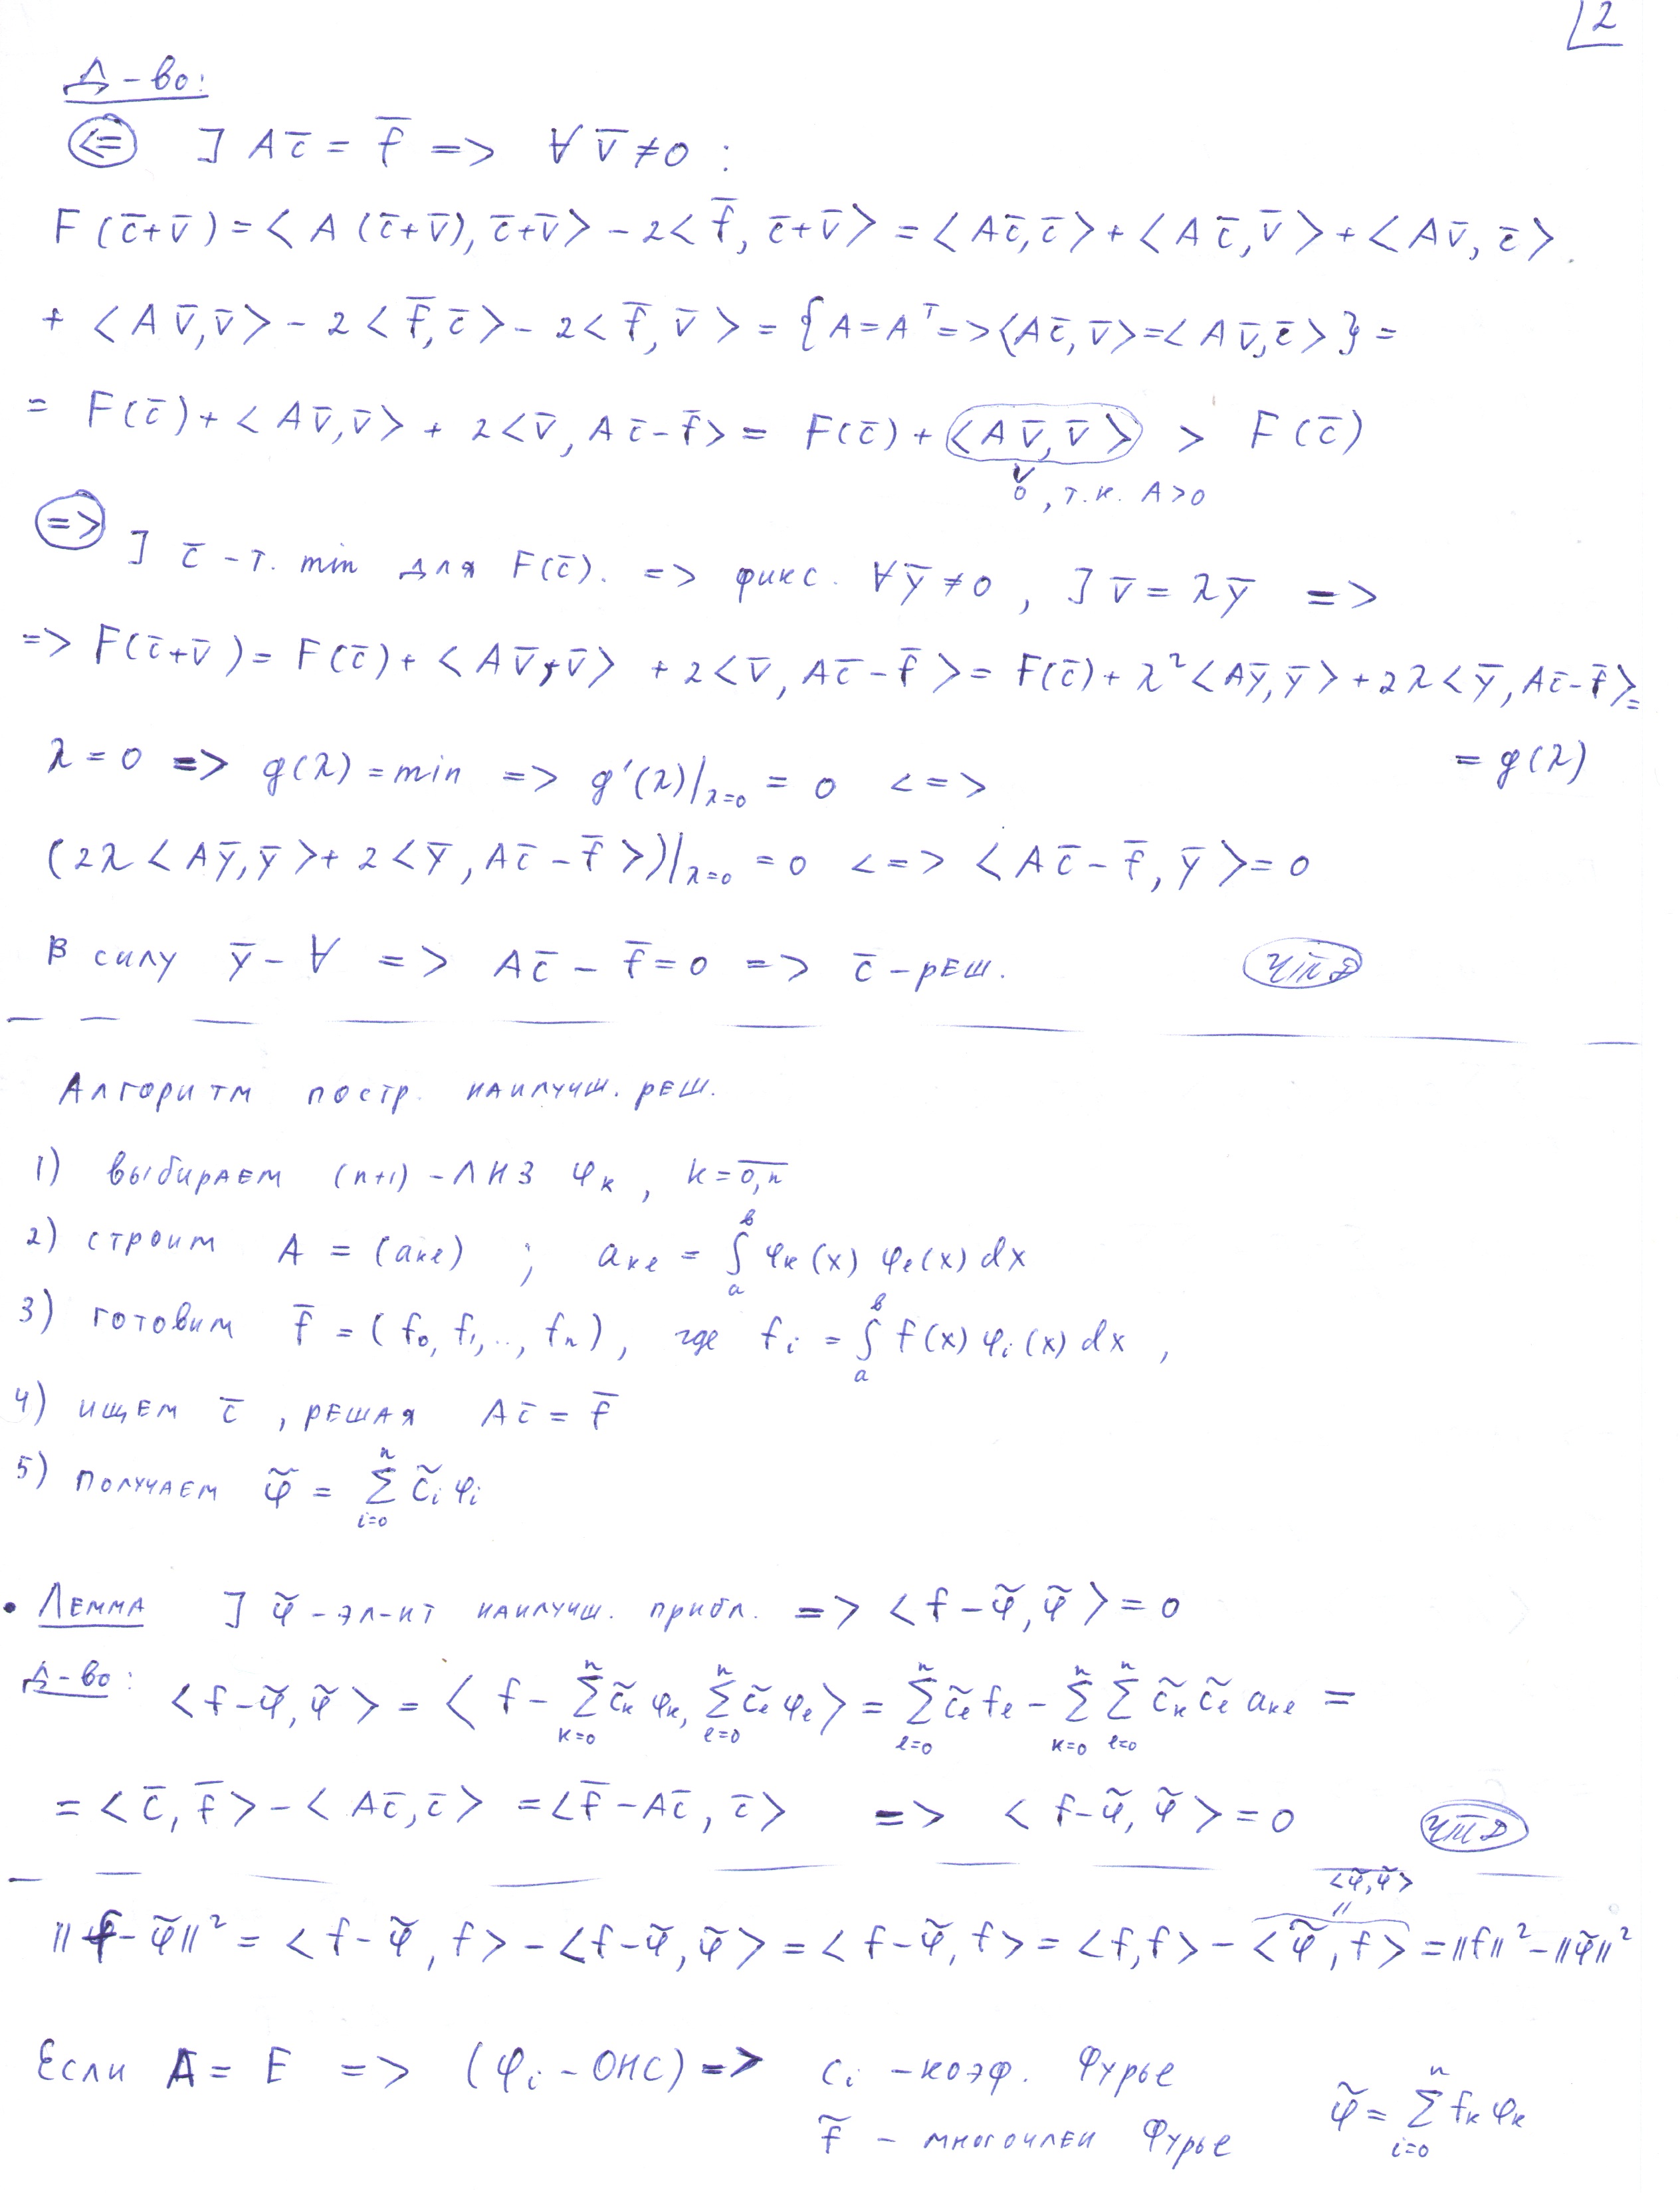 2
Д-во:
<= ] Ac̄ = f̄ => ∀ v̄ ≠ 0 :
F(c̄+v̄) = <A(c̄+v̄), c̄+v̄> - 2<f̄, c̄+v̄> = <Ac̄, c̄> + <Ac̄, v̄> + <Av̄, c̄>
+ <Av̄, v̄> - 2<f̄, c̄> - 2<f̄, v̄> = {A = Aᵀ => <Ac̄, v̄> = <Av̄, c̄>} =
= F(c̄) + <Av̄, v̄> + 2<v̄, Ac̄ - f̄> = F(c̄) + <Av̄, v̄> > F(c̄)
∨ 0, т.к. A > 0
=> ] c̄ - т. min для F(c̄). => фикс. ∀ȳ ≠ 0, ] v̄ = λȳ =>
=> F(c̄+v̄) = F(c̄) + <Av̄, v̄> + 2<v̄, Ac̄ - f̄> = F(c̄) + λ²<Aȳ, ȳ> + 2λ<ȳ, Ac̄ - f̄> =
= g(λ)
λ = 0 => g(λ) = min => g'(λ)|λ=0 = 0 <=>
(2λ<Aȳ, ȳ> + 2<ȳ, Ac̄ - f̄>)|λ=0 = 0 <=> <Ac̄ - f̄, ȳ> = 0
В силу ȳ - ∀ => Ac̄ - f̄ = 0 => c̄ - реш. ЧТД
Алгоритм постр. наилучш. реш.
1) выбираем (n+1) - ЛНЗ φₖ, k = 0,n
2) строим A = (aₖₑ) ; aₖₑ = ∫ₐᵇ φₖ(x) φₑ(x) dx
3) готовим f̄ = (f₀, f₁, .., fₙ), где fᵢ = ∫ₐᵇ f(x) φᵢ(x) dx,
4) ищем c̄, решая Ac̄ = f̄
5) получаем φ̃ = Σᵢ₌₀ⁿ c̃ᵢ φᵢ
• Лемма ] φ̃ - эл-нт наилучш. прибл. => <f - φ̃, φ̃> = 0
Д-во: <f - φ̃, φ̃> = <f - Σₖ₌₀ⁿ c̃ₖ φₖ, Σₑ₌₀ⁿ c̃ₑ φₑ> = Σₑ₌₀ⁿ c̃ₑ fₑ - Σₖ₌₀ⁿ Σₑ₌₀ⁿ c̃ₖ c̃ₑ aₖₑ =
= <c̄, f̄> - <Ac̄, c̄> = <f̄ - Ac̄, c̄> => <f - φ̃, φ̃> = 0 ЧТД
<φ̃, φ̃>
||f - φ̃||² = <f - φ̃, f> - <f - φ̃, φ̃> = <f - φ̃, f> = <f, f> - <φ̃, f> = ||f||² - ||φ̃||²
Если A = E => (φᵢ - ОНС) => cᵢ - коэф. Фурье
f̃ - многочлен Фурье φ̃ = Σᵢ₌₀ⁿ fₖ φₖ